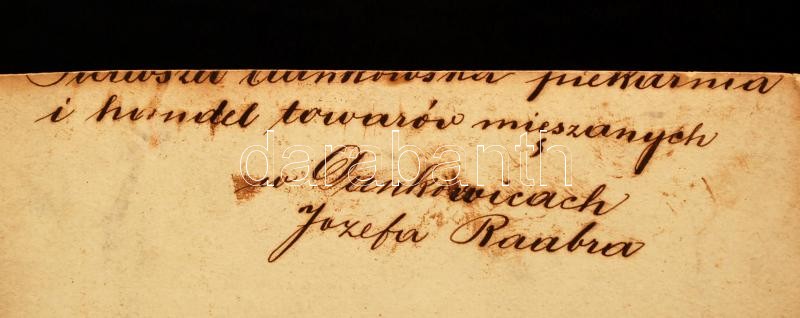 Pierwsza Dankowska piekarnia
i handel towarów mięszanych
w Dankowicach
Józefa Raabra
darabanth